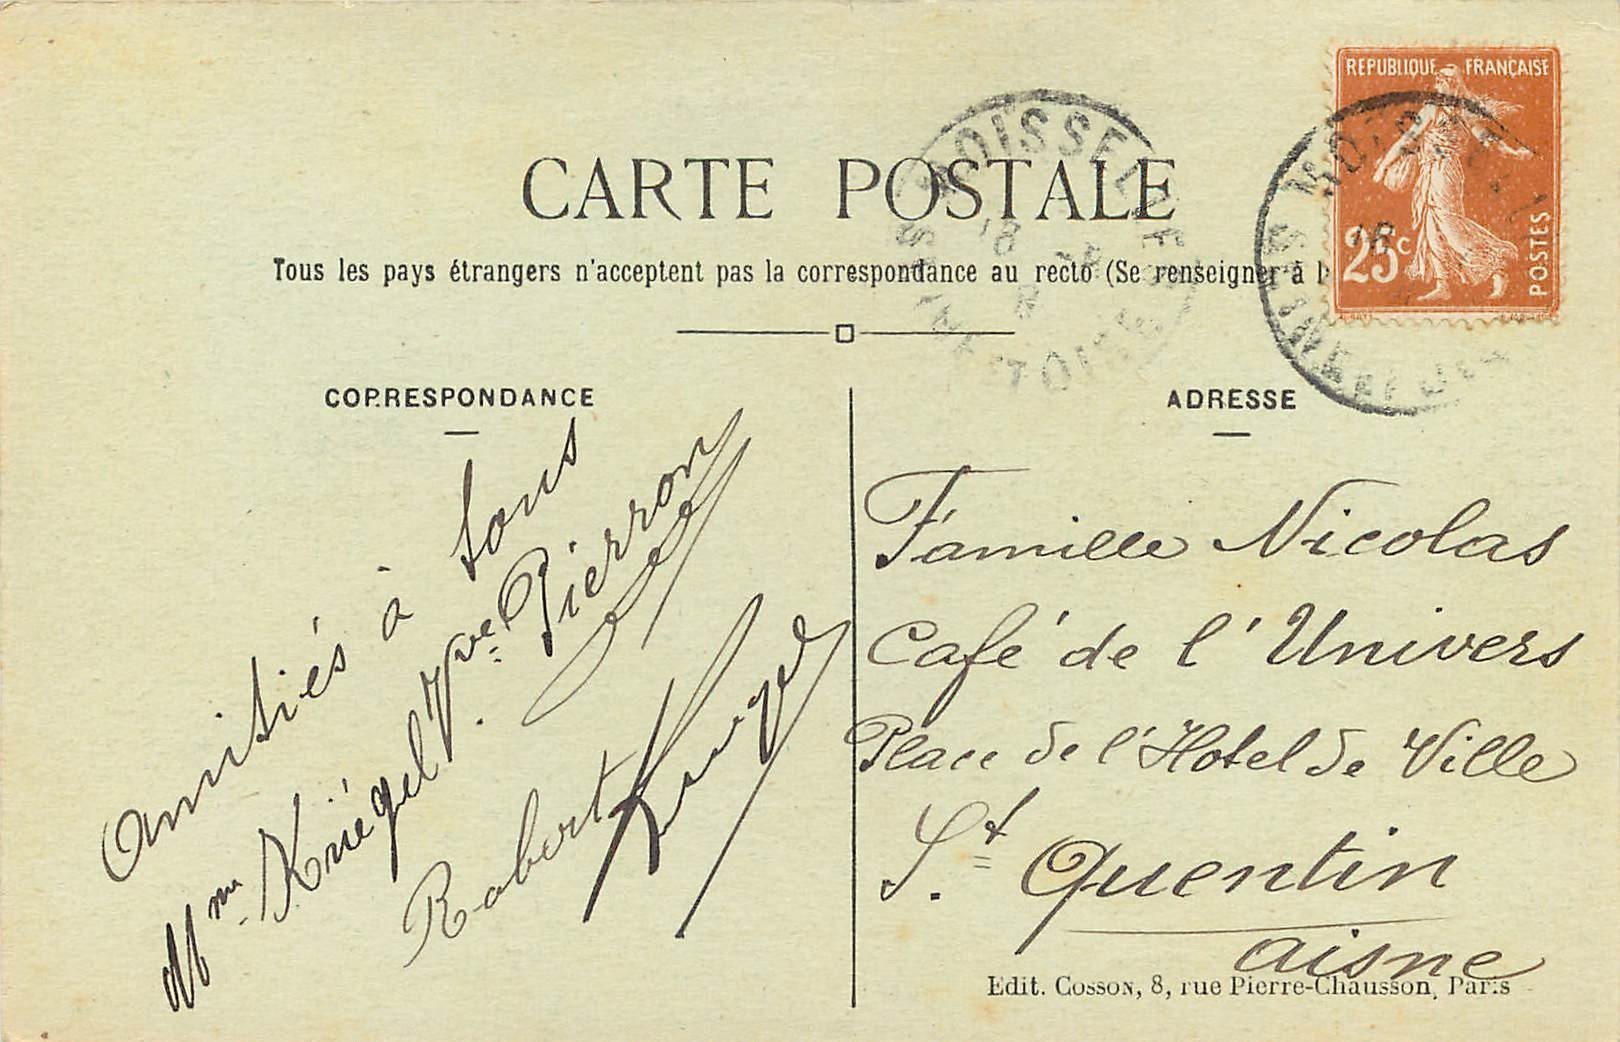 REPUBLIQUE FRANÇAISE
25c
POSTES
CARTE POSTALE
Tous les pays étrangers n'acceptent pas la correspondance au recto (Se renseigner à l
CORRESPONDANCE
Amitiés à tous
Mme Kriégel Vve Pierron
Robert Kriegel
ADRESSE
Famille Nicolas
Café de l'Univers
Place de l'Hotel de Ville
St Quentin
aisne
Edit. Cosson, 8, rue Pierre-Chausson, Paris